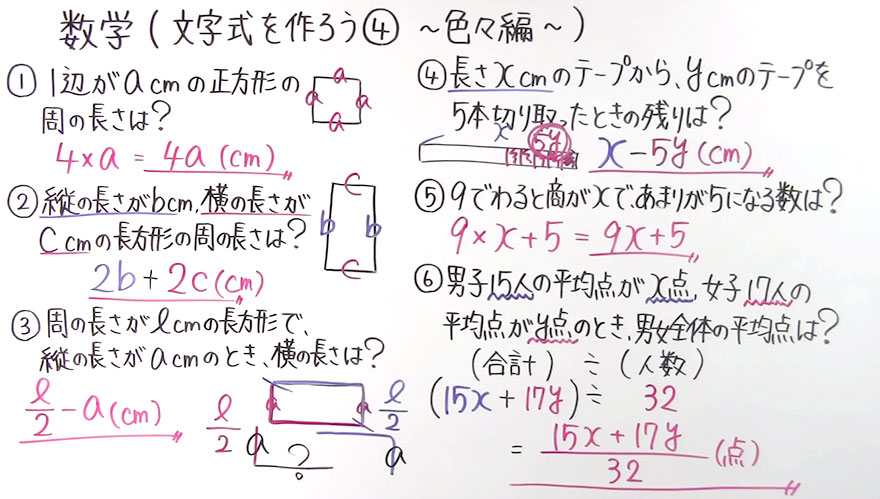 数学(文字式を作ろう④ ~色々編~)
① 1辺がacmの正方形の
周の長さは?
a
a
a
a
4×a = 4a (cm)
② 縦の長さがbcm,横の長さが
Ccmの長方形の周の長さは?
c
b
b
c
2b+2c(cm)
③ 周の長さがℓcmの長方形で、
縦の長さがacmのとき、横の長さは?
ℓ/2 - a (cm)
ℓ/2
a
a
ℓ/2
a
?
a
④ 長さxcmのテープから、ycmのテープを
5本切り取ったときの残りは?
x
5y
x-5y (cm)
⑤ 9でわると商がxで、あまりが5になる数は?
9×x+5 = 9x+5
⑥ 男子15人の平均点がx点,女子17人の
平均点がy点のとき、男女全体の平均点は?
(合計) ÷ (人数)
(15x+17y) ÷ 32
= 15x+17y/32 (点)